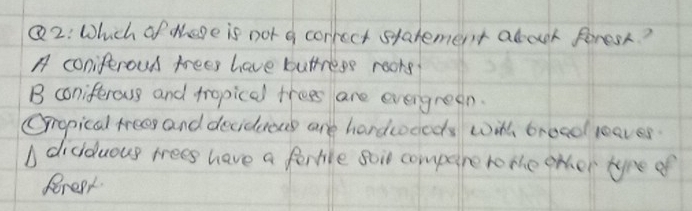 Q2: Which of these is not a correct statement about forest?
A coniferous trees have buttress roots.
B coniferous and tropical trees are evergreen.
C Tropical trees and deciduous are hardwoods with broad leaves.
D diciduous trees have a fertile soil compare to the other type of
forest.